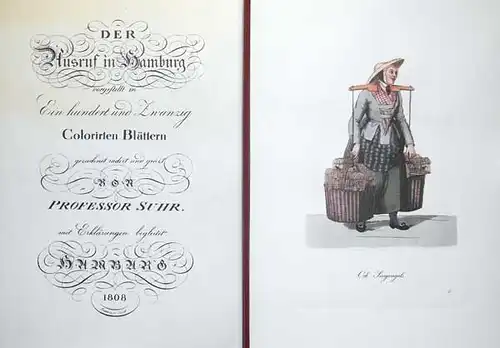 DER
Ausruf in Hamburg
vorgestellt in
Ein hundert und Zwanzig
Colorirten Blättern
gezeichnet radirt und geäzt
VON
PROFESSOR SUHR.
mit Erklärungen begleitet
HAMBURG
1808